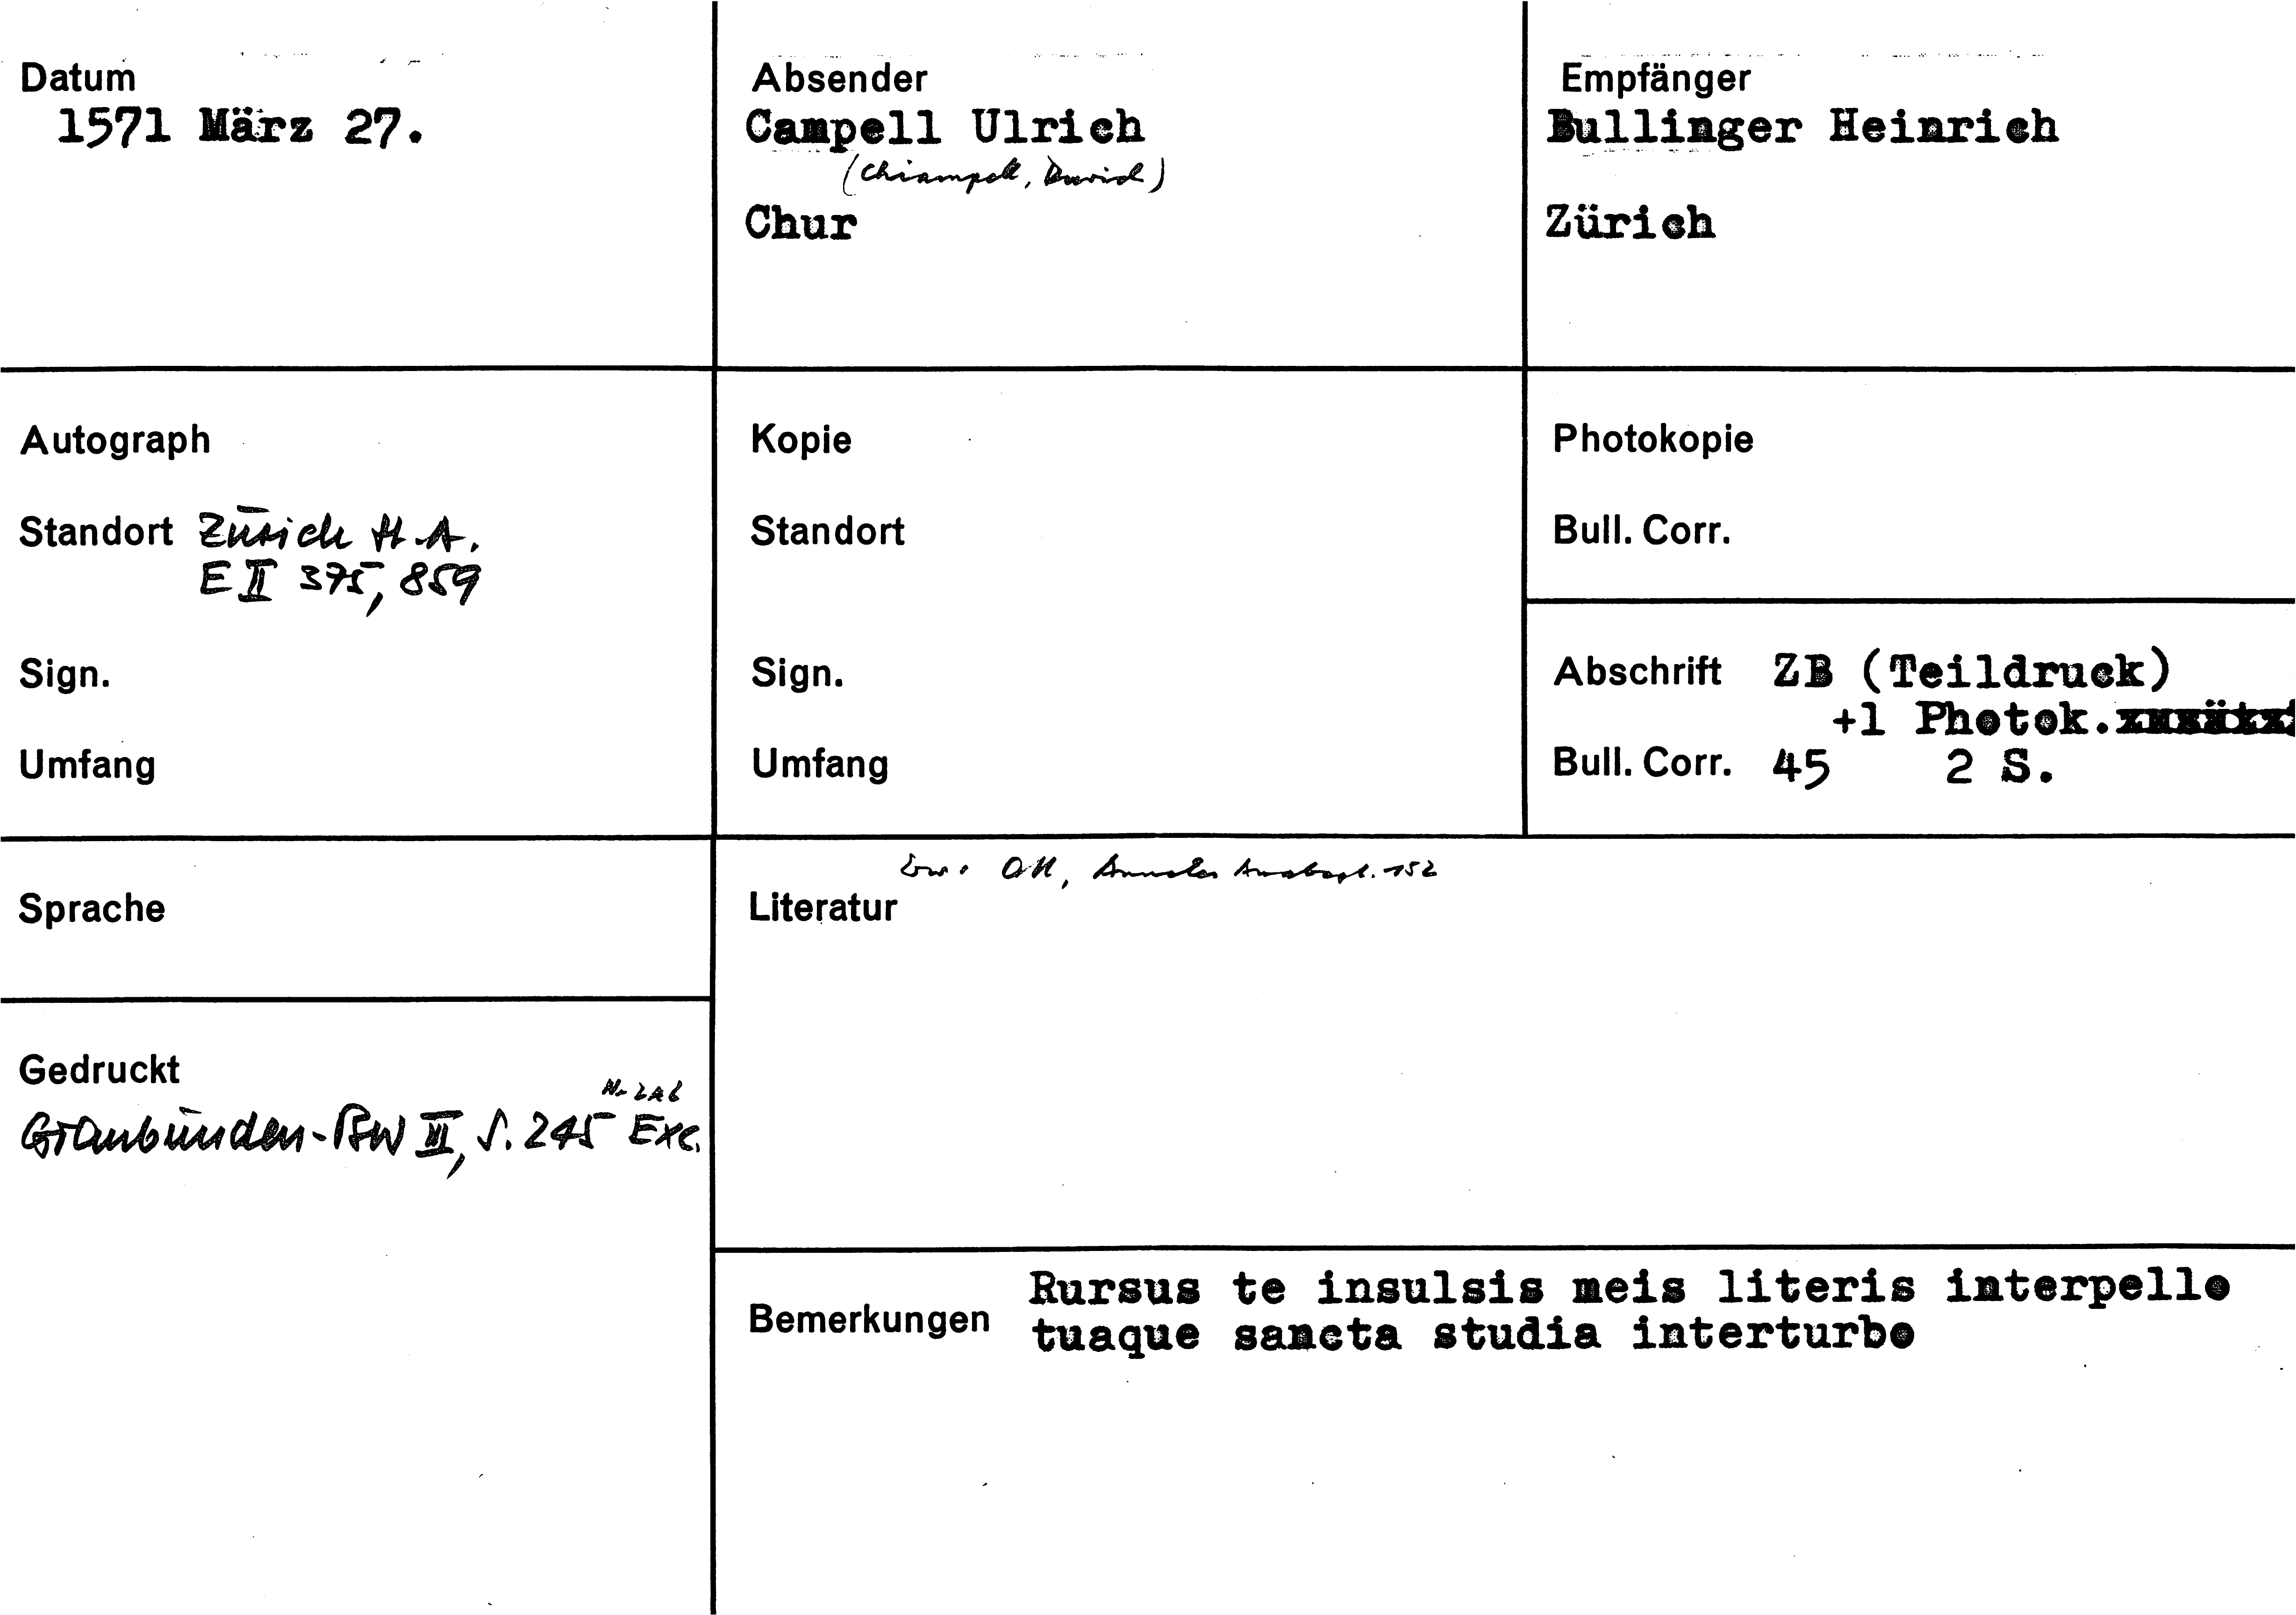 Datum
1571 März 27.
Absender
Campell Ulrich
(Chiampell, David)
Chur
Empfänger
Bullinger Heinrich
Zürich
Autograph
Standort Zürich St.A.
E II 375, 859
Sign.
Umfang
Kopie
Standort
Sign.
Umfang
Photokopie
Bull. Corr.
Abschrift ZB (Teildruck)
+1 Photok.
Bull. Corr. 45 2 S.
Sprache
Erw: Ott, Annales Anabapt. 152
Literatur
Gedruckt
Graubünden-BW III, S. 245 Exc.
Bemerkungen Rursus te insulsis meis literis interpello
tuaque sancta studia interturbo